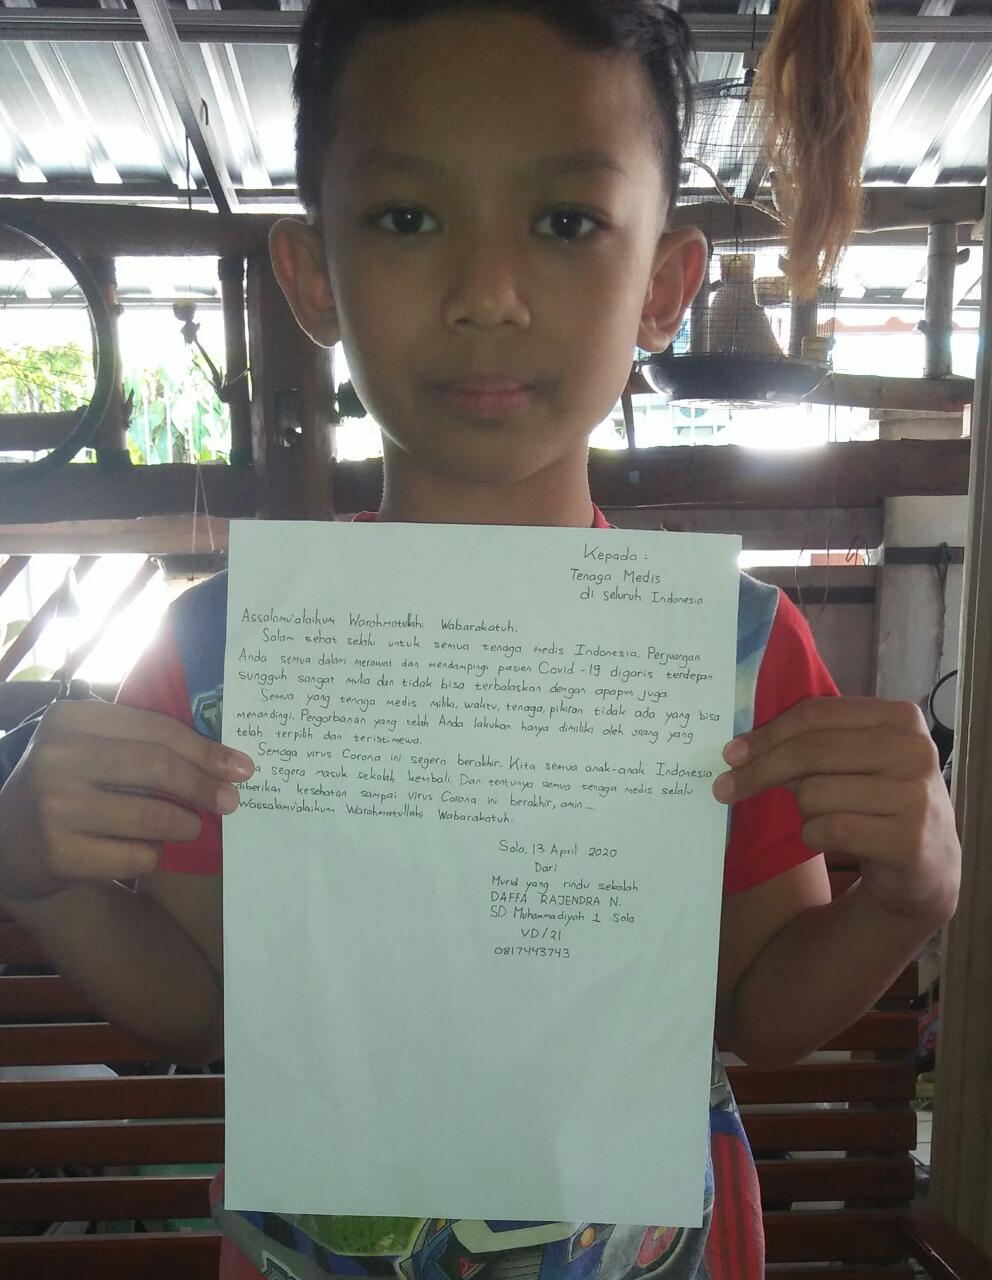 Kepada :
Tenaga Medis
di seluruh Indonesia
Assalamu'alaikum Warahmatullahi Wabarakatuh.
Salam sehat selalu untuk semua tenaga medis Indonesia. Perjuangan
Anda semua dalam merawat dan mendampingi pasien Covid-19 digaris terdepan
sungguh sangat mulia dan tidak bisa terbalaskan dengan apapun juga.
Semua yang tenaga medis miliki, waktu, tenaga, pikiran tidak ada yang bisa
menandingi. Pengorbanan yang telah Anda lakukan hanya dimiliki oleh orang yang
telah terpilih dan teristimewa.
Semoga virus Corona ini segera berakhir. Kita semua anak-anak Indonesia
segera masuk sekolah kembali. Dan tentunya semua tenaga medis selalu
diberikan kesehatan sampai virus Corona ini berakhir, amin....
Wassalamu'alaikum Warahmatullahi Wabarakatuh.
Solo, 13 April 2020
Dari
Murid yang rindu sekolah
DAFFA RAJENDRA N.
SD Muhammadiyah 1 Solo
VD/21
0817443743